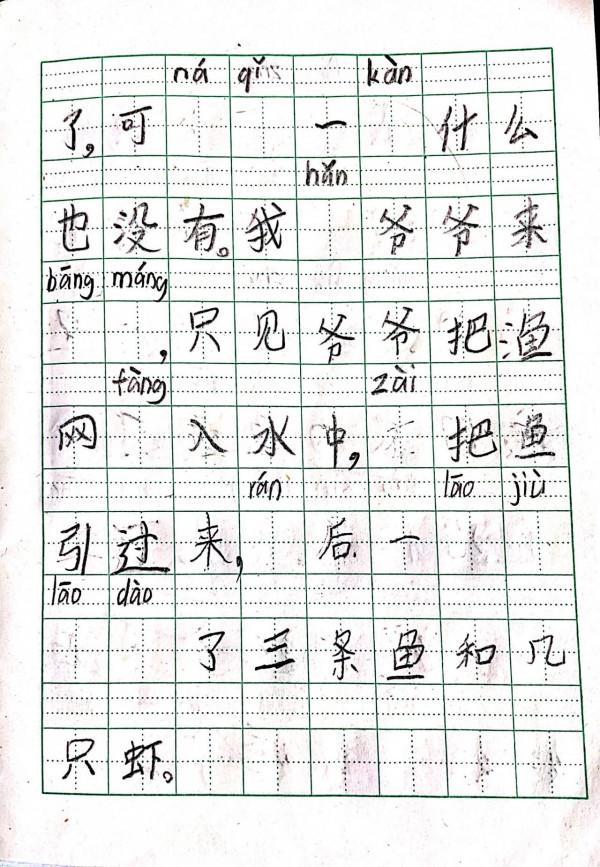 ná qǐ kàn
了，可 一 什么
hǎn
也没有。我 爷爷来
bāng máng
，只见爷爷把渔
fàng zài
网 入水中， 把鱼
rán lāo jiù
引过来， 后一
lāo dào
了三条鱼和几
只虾。